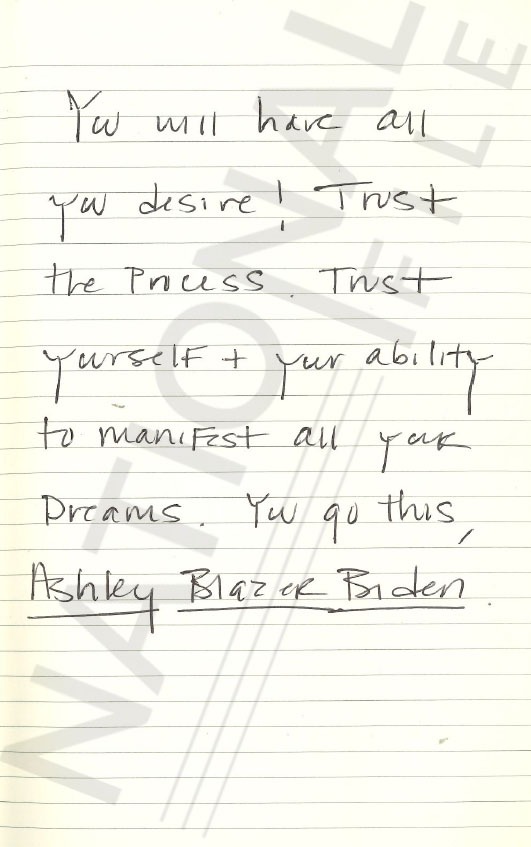 You will have all
you desire! Trust
the Process. Trust
yourself + your ability
to manifest all your
Dreams. You go this,
Ashley Blazer Biden.
NATIONAL FILE